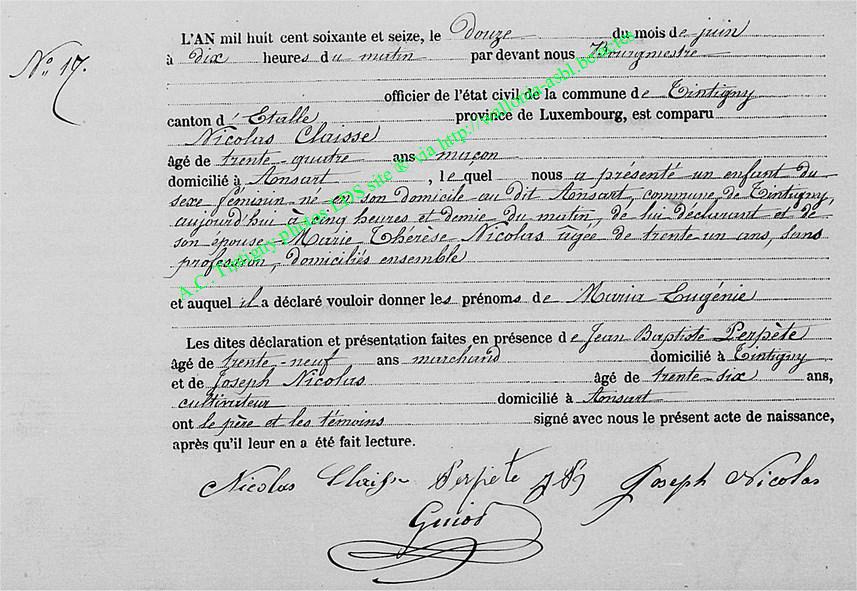 L'AN mil huit cent soixante et seize, le douze du mois de juin
No 17.
à dix heures du matin par devant nous Bourgmestre
officier de l'état civil de la commune de Tintigny
canton d'Etalle province de Luxembourg, est comparu
Nicolas Claisse
âgé de trente-quatre ans maçon
domicilié à Ansart, lequel nous a présenté un enfant du
sexe féminin né en son domicile au dit Ansart, commune de Tintigny,
aujourd'hui à cinq heures et demie du matin, de lui déclarant et de
son épouse Marie Thérèse Nicolas âgée de trente un ans, sans
profession, domiciliés ensemble
et auquel il a déclaré vouloir donner les prénoms de Maria Eugénie
Les dites déclaration et présentation faites en présence de Jean Baptiste Perpète
âgé de trente-neuf ans marchand domicilié à Tintigny
et de Joseph Nicolas âgé de trente-six ans,
cultivateur domicilié à Ansart
ont le père et les témoins signé avec nous le présent acte de naissance,
après qu'il leur en a été fait lecture.
Nicolas Claisse Perpète JB Joseph Nicolas
Guiot
A.C. Tintigny photos LDS site ® via http://wallonia-asbl.be